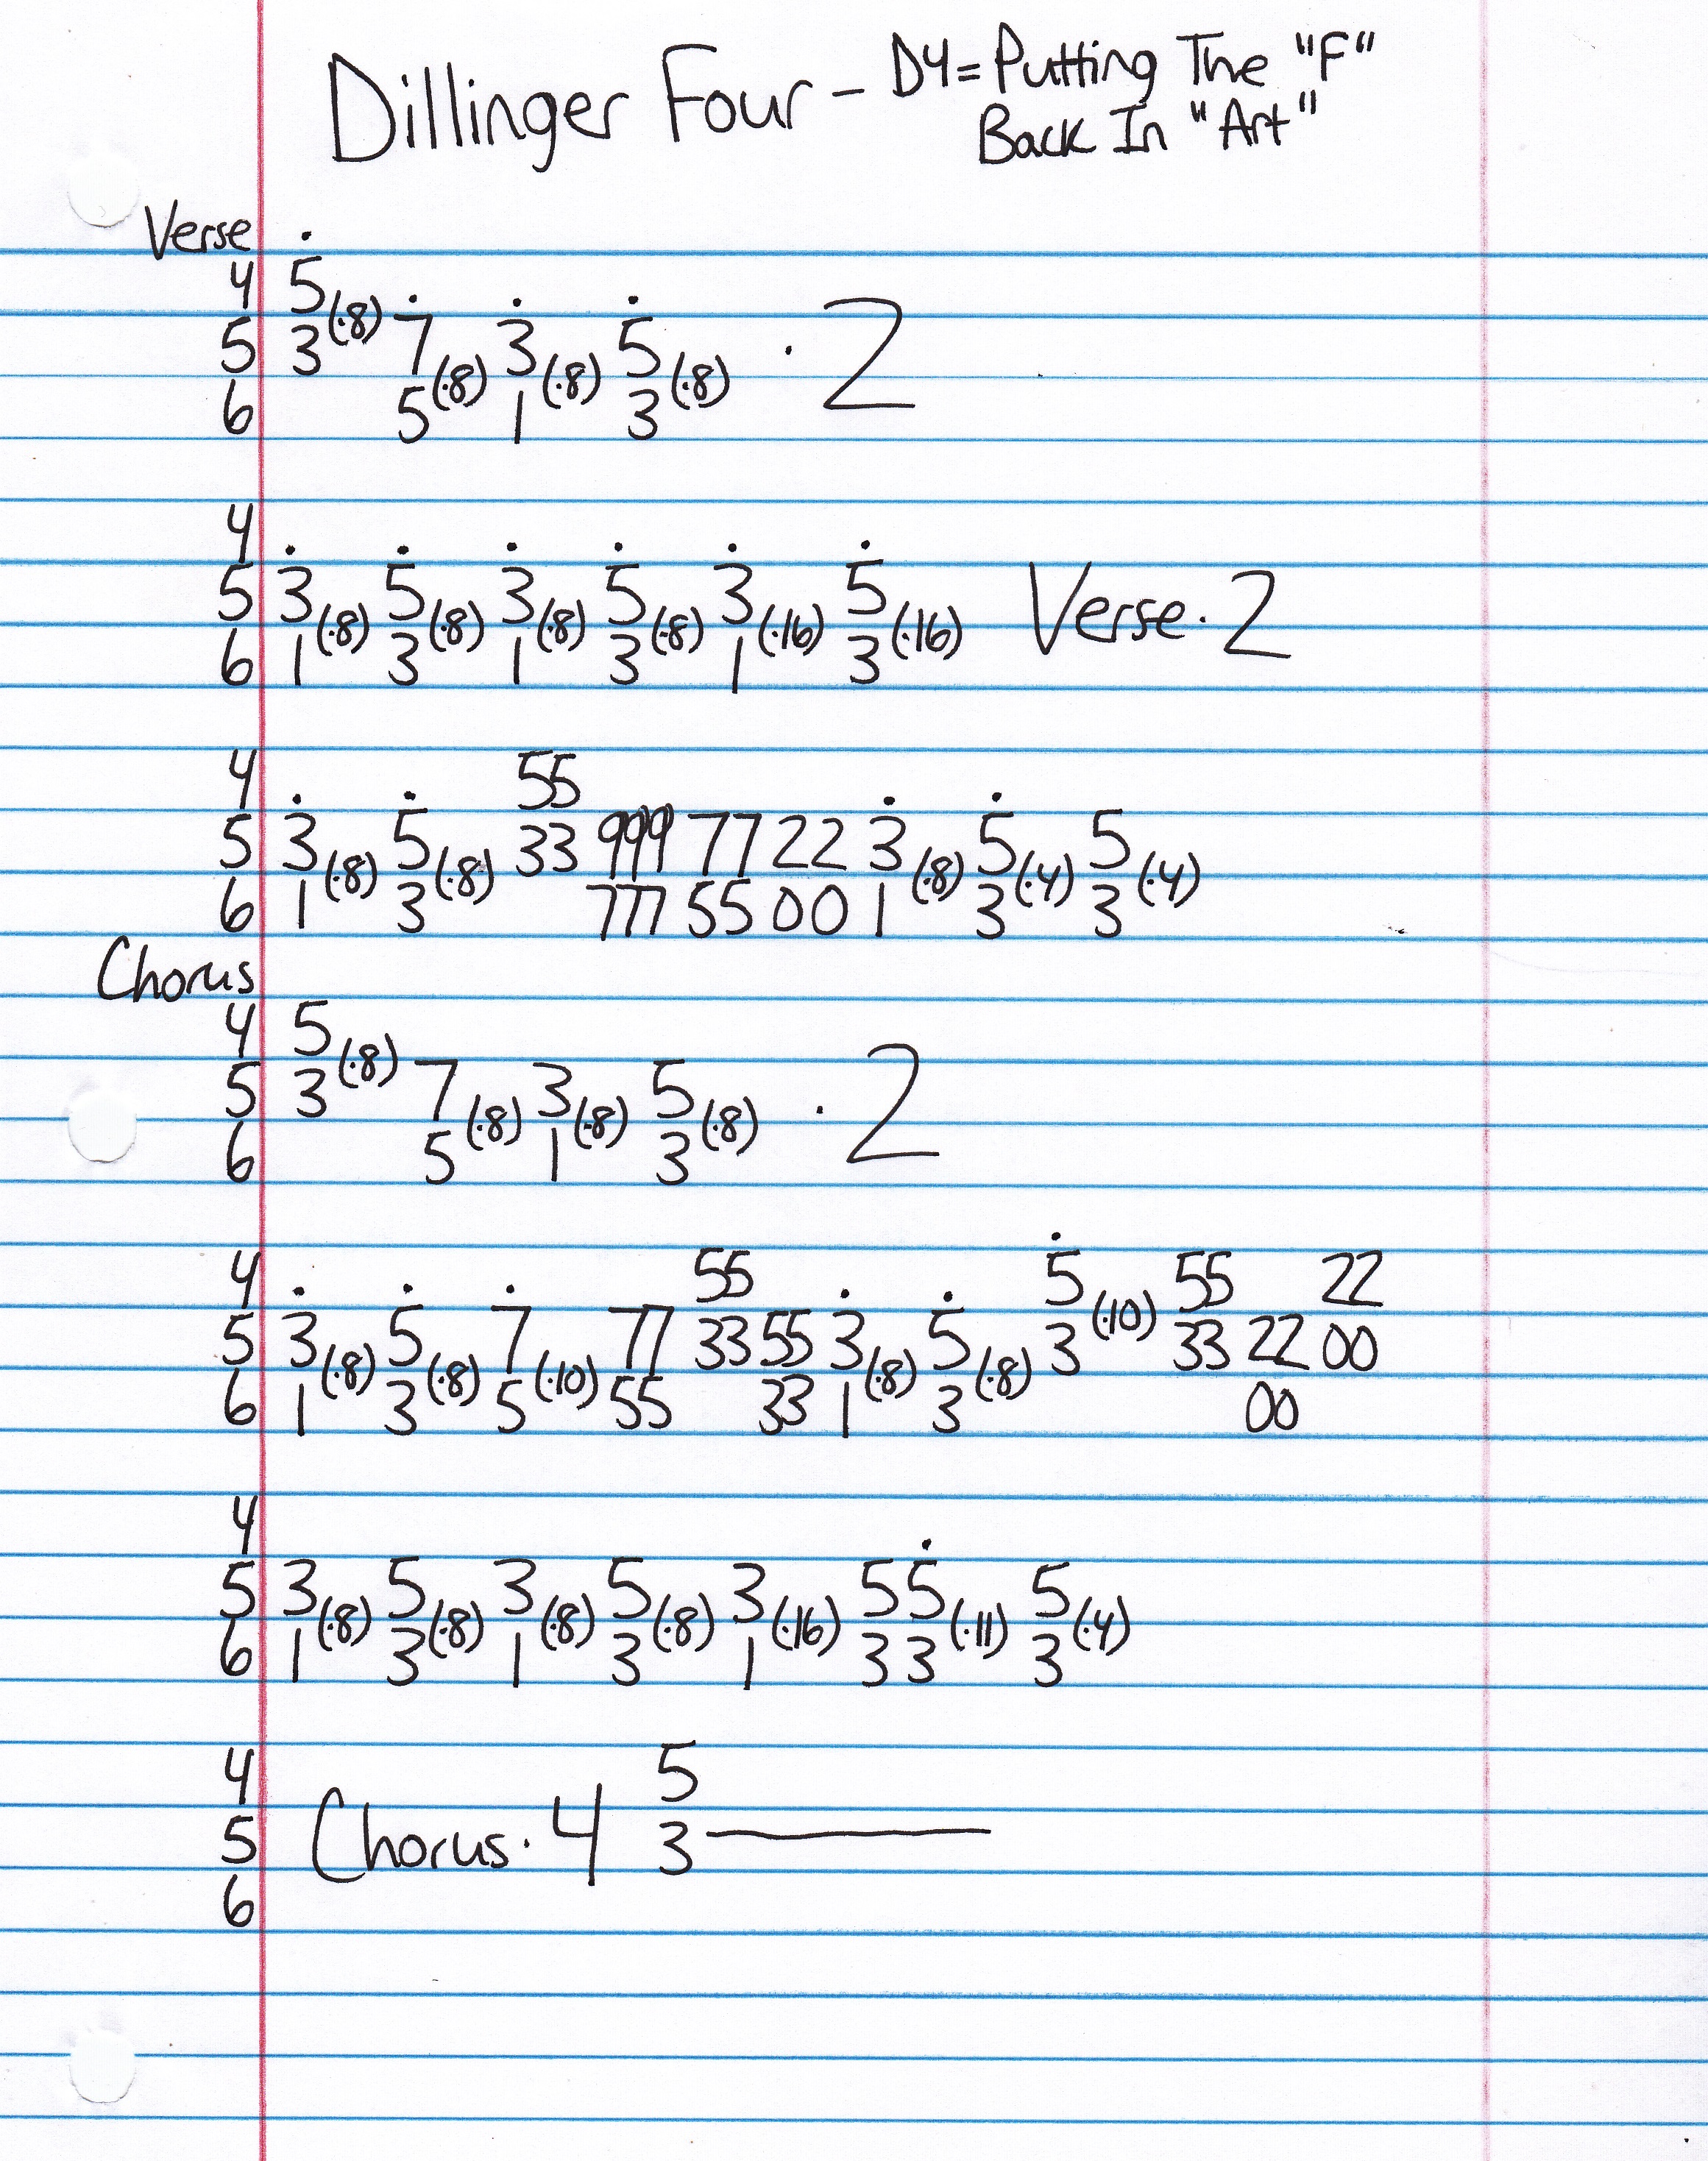 Dillinger Four - D4= Putting The "F"
Back In "Art"
Verse
4 5
5 3 (·8) 7 3 5 · 2
6 5 (·8) 1 (·8) 3 (·8)
4
5 3 5 3 5 3 5 Verse · 2
6 1 (·8) 3 (·8) 1 (·8) 3 (·8) 1 (·16) 3 (·16)
4 55
5 3 5 33 999 77 22 3 5 5
6 1 (·8) 3 (·8) 777 55 00 1 (·8) 3 (·4) 3 (·4)
Chorus
4 5
5 3 (·8) 7 3 5 · 2
6 5 (·8) 1 (·8) 3 (·8)
4 55 5 55 22
5 3 5 7 77 33 55 3 5 3 (·10) 33 22 00
6 1 (·8) 3 (·8) 5 (·10) 55 33 1 (·8) 3 (·8) 00
4
5 3 5 3 5 3 5 5 5
6 1 (·8) 3 (·8) 1 (·8) 3 (·8) 1 (·16) 3 3 (·11) 3 (·4)
4 5
5 Chorus · 4 3
6